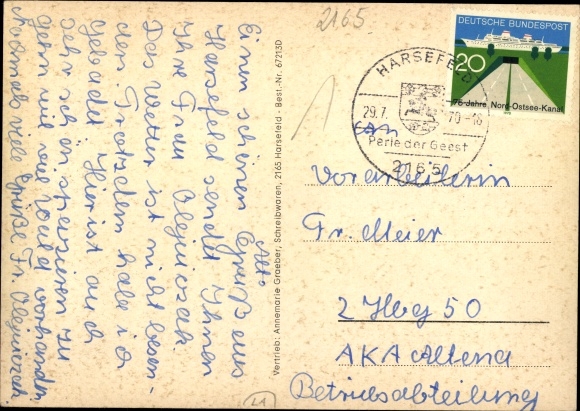 2165
DEUTSCHE BUNDESPOST
20
75 Jahre Nord-Ostsee-Kanal
1970
HARSEFELD
29.7. 70-16
Perle der Geest
2165
Einen schönen Gruß aus
Harsefeld sendet Ihnen
Ihre Frau
Das Wetter ist nicht beson-
ders. Trotzdem habe ich
gebadet. Hier ist auch
sehr schön spazieren zu
gehen weil viel Wald vorhanden
Nochmals viele Grüße Fr.
Vertrieb: Annemarie Graeber, Schreibwaren, 2165 Harsefeld · Best.-Nr. 67213D
An
Vorarbeiterin
Fr. Meier
2 Hbg 50
AKA Altona
Betriebsabteilung